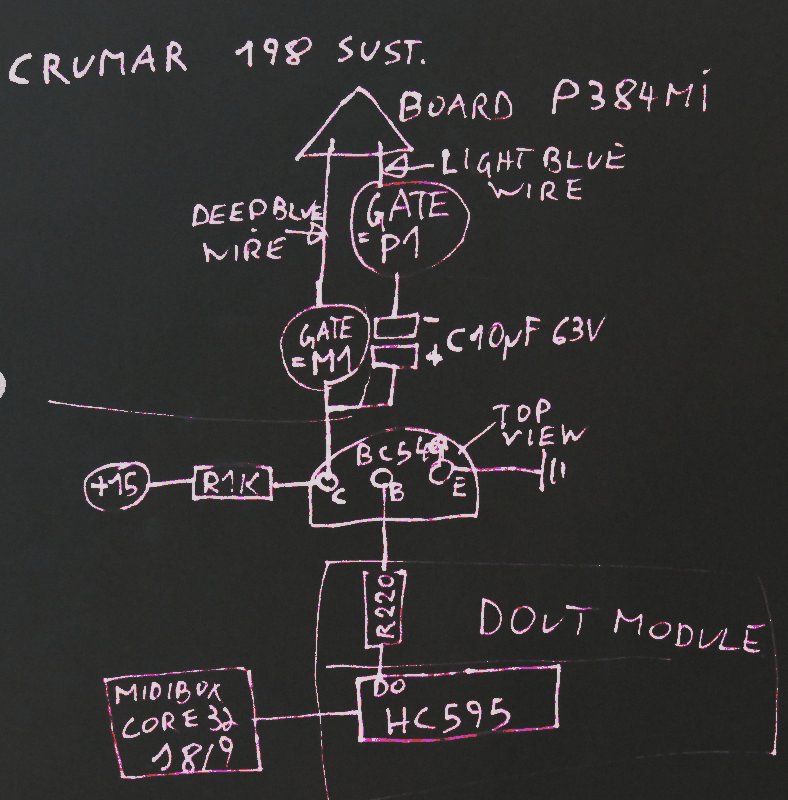 CRUMAR 198 SUST.
BOARD P384Mi
LIGHT BLUE
WIRE
DEEPBLUE
WIRE
GATE
= P1
GATE
= M1
-
+ C10µF 63V
TOP
VIEW
+15
R1K
C
B
E
R220
DOUT MODULE
MIDIBOX
CORE32
DO
HC595